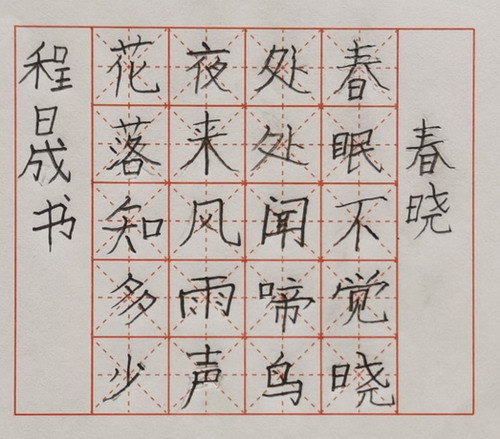 春晓
春眠不觉晓
处处闻啼鸟
夜来风雨声
花落知多少
程晟书